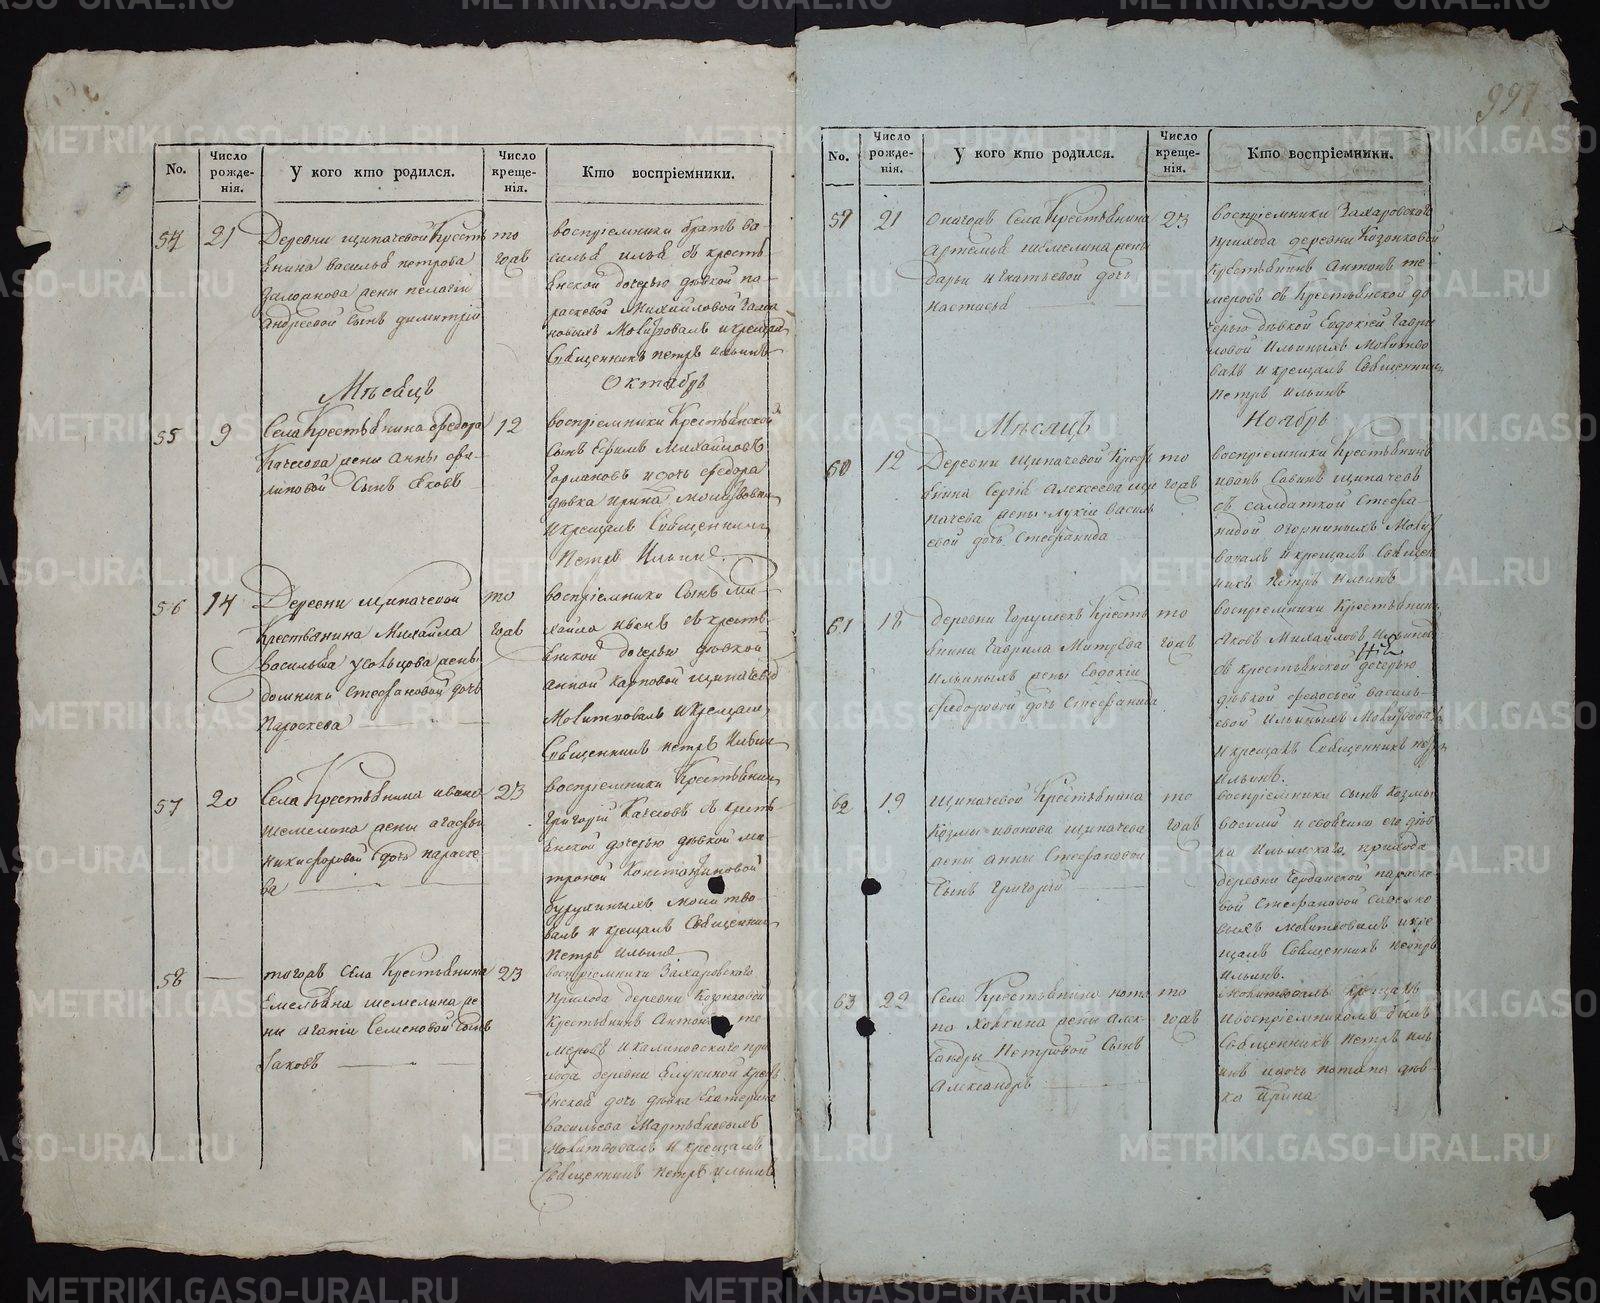 997
No.
Число рожде-нія.
У кого кто родился.
Число креще-нія.
Кто воспріемники.
54
21
Деревни щипачевой Кресть
янина василья петрова
жены пелагіи
андреевой сынъ димитрій
то
гожъ
воспріемники братъ ва
силья илья съ кресть
янской дочерью дѣвкой па-
раскевой Михайловой
новыхъ Молитвовалъ и крещалъ
Священникъ петръ ильинъ
Мѣсяцъ
Октябрь
55
9
Села Крестьянина федора
Качесова жены анны фи-
липовой сынъ яковъ
12
воспріемники Крестьянской
сынъ Ефимъ Михайловъ
и дочь федора
дѣвка ирина молитвовалъ
и крещалъ Священникъ
Петръ Ильинъ
56
14
Деревни щипачевой
Крестьянина Михайла
Васильева усольцова жены
домники Стефановой дочь
Параскева
то
гожъ
воспріемники Сынъ Ми-
хайла иванъ съ кресть-
янской дочерью дѣвкой
анной карповой щипачевой
Молитвовалъ и крещалъ
Священникъ петръ ильинъ
57
20
Села Крестьянина ивана
шемелина жены агафьи
никифоровой дочь параске
ва
23
воспріемники Крестьянинъ
григорій Качесовъ съ кресть
янской дочерью дѣвкой ма-
троной Константиновой
молитво-
валъ и крещалъ Священникъ
петръ ильинъ
58
тогожъ села Крестьянина
Емельяна шемелина же
ны агапіи Семеновой сынъ
Іаковъ
23
воспріемники Захаровскаго
прихода деревни
Крестьянинъ Антонъ те
меровъ и калиновскаго при
хода деревни Елкиной крест
янской дочь дѣвка Екатерина
васильева Мартьяновыхъ
молитвовалъ и крещалъ
Священникъ петръ ильинъ
No.
Число рожде-нія.
У кого кто родился.
Число креще-нія.
Кто воспріемники.
59
21
Села Крестьянина
Артемья шемелина жены
дарьи игнатьевой дочь
настасья
23
воспріемники Захаровскаго
прихода деревни Казонковой
Крестьянинъ антонъ те
меровъ съ Крестьянской до
черью дѣвкой Евдокіей гаври
ловой ильиныхъ Молитво
валъ и крещалъ Священникъ
петръ ильинъ
Мѣсяцъ
Ноябрь
60
12
Деревни щипачевой Кресть
янина Сергія алексеева щи
пачева жены лукіи василь
евой дочь Стефанида
то
гожъ
воспріемники Крестьянинъ
иванъ Савинъ щипачевъ
съ салдаткой Стефа-
нидой Молит
вовалъ и крещалъ Священ
никъ петръ ильинъ
61
18
деревни Кресть
янина гаврила
ильиныхъ жены Евдокіи
федоровой дочь Стефанида
то
гожъ
воспріемники Крестьянинъ
яковъ Михайловъ ильиныхъ
съ крестьянской дочерью
дѣвкой федосьей василь-
евой ильиныхъ Молитвовалъ
и крещалъ Священникъ петръ
ильинъ.
62
19
щипачевой Крестьянина
Козмы иванова щипачева
жены анны Стефановой
сынъ григорій
то
гожъ
воспріемники сынъ козмы
василій и его дѣв
ка ильинскаго прихода
деревни параске
вой Стефановой
выхъ Молитвовалъ и кре
щалъ Священникъ петръ
ильинъ.
63
22
Села Крестьянина пота
па жены алек-
сандры Петровой Сынъ
Александръ
то
гожъ
молитвовалъ крещалъ
и воспріемникомъ былъ
Священникъ петръ иль
инъ и дочь потапа дѣв-
ка ирина